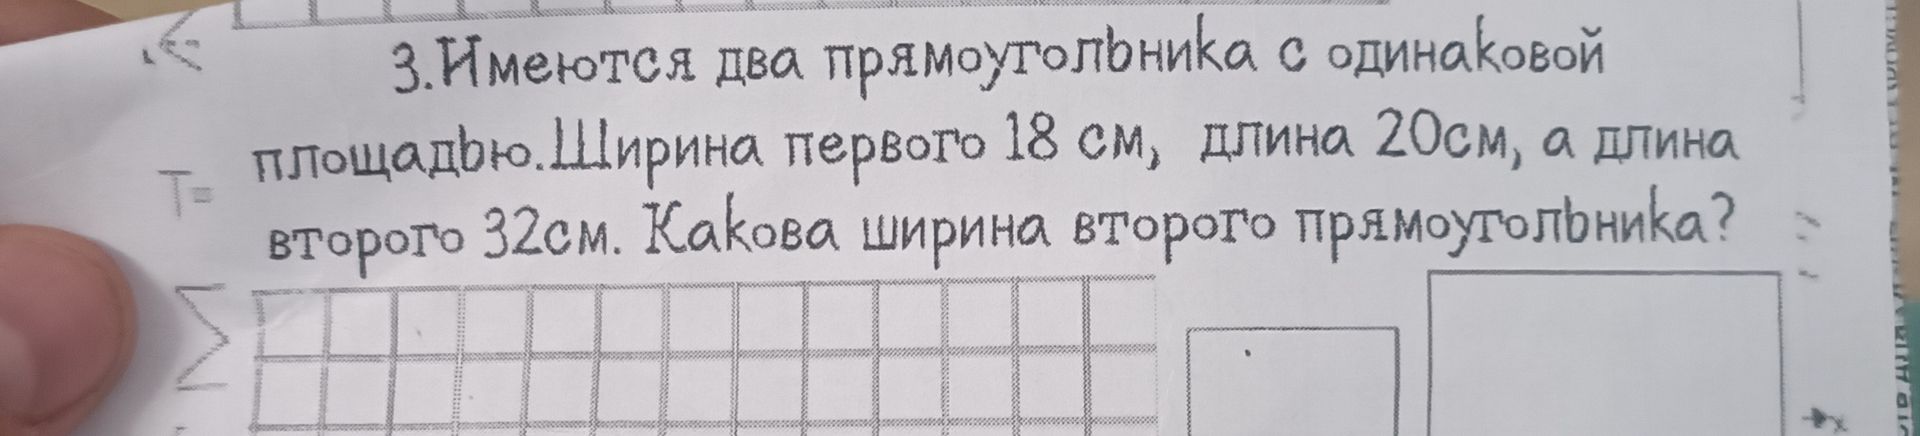 3.Имеются два прямоугольника с одинаковой
площадью.Ширина первого 18 см, длина 20см, а длина
второго 32см. Какова ширина второго прямоугольника?